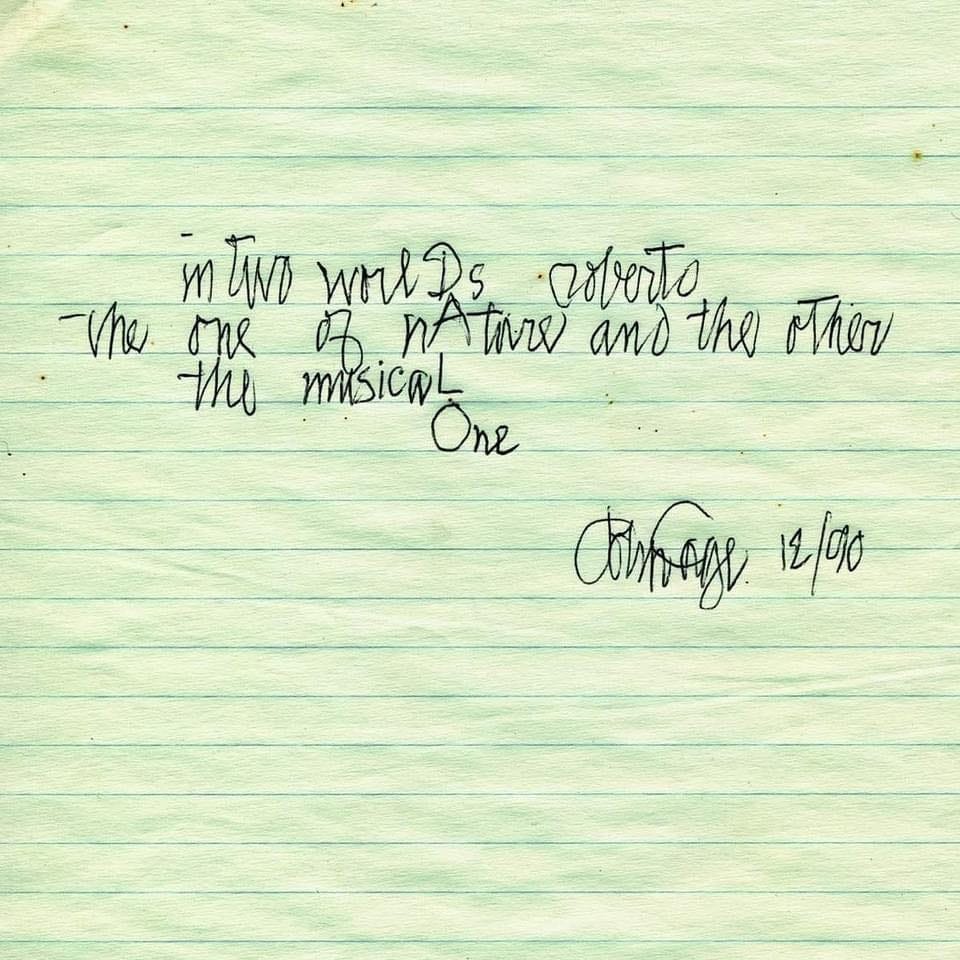 in two worlDs roberto
the one of nAture and the other
the musicaL
One
John Cage 12/90